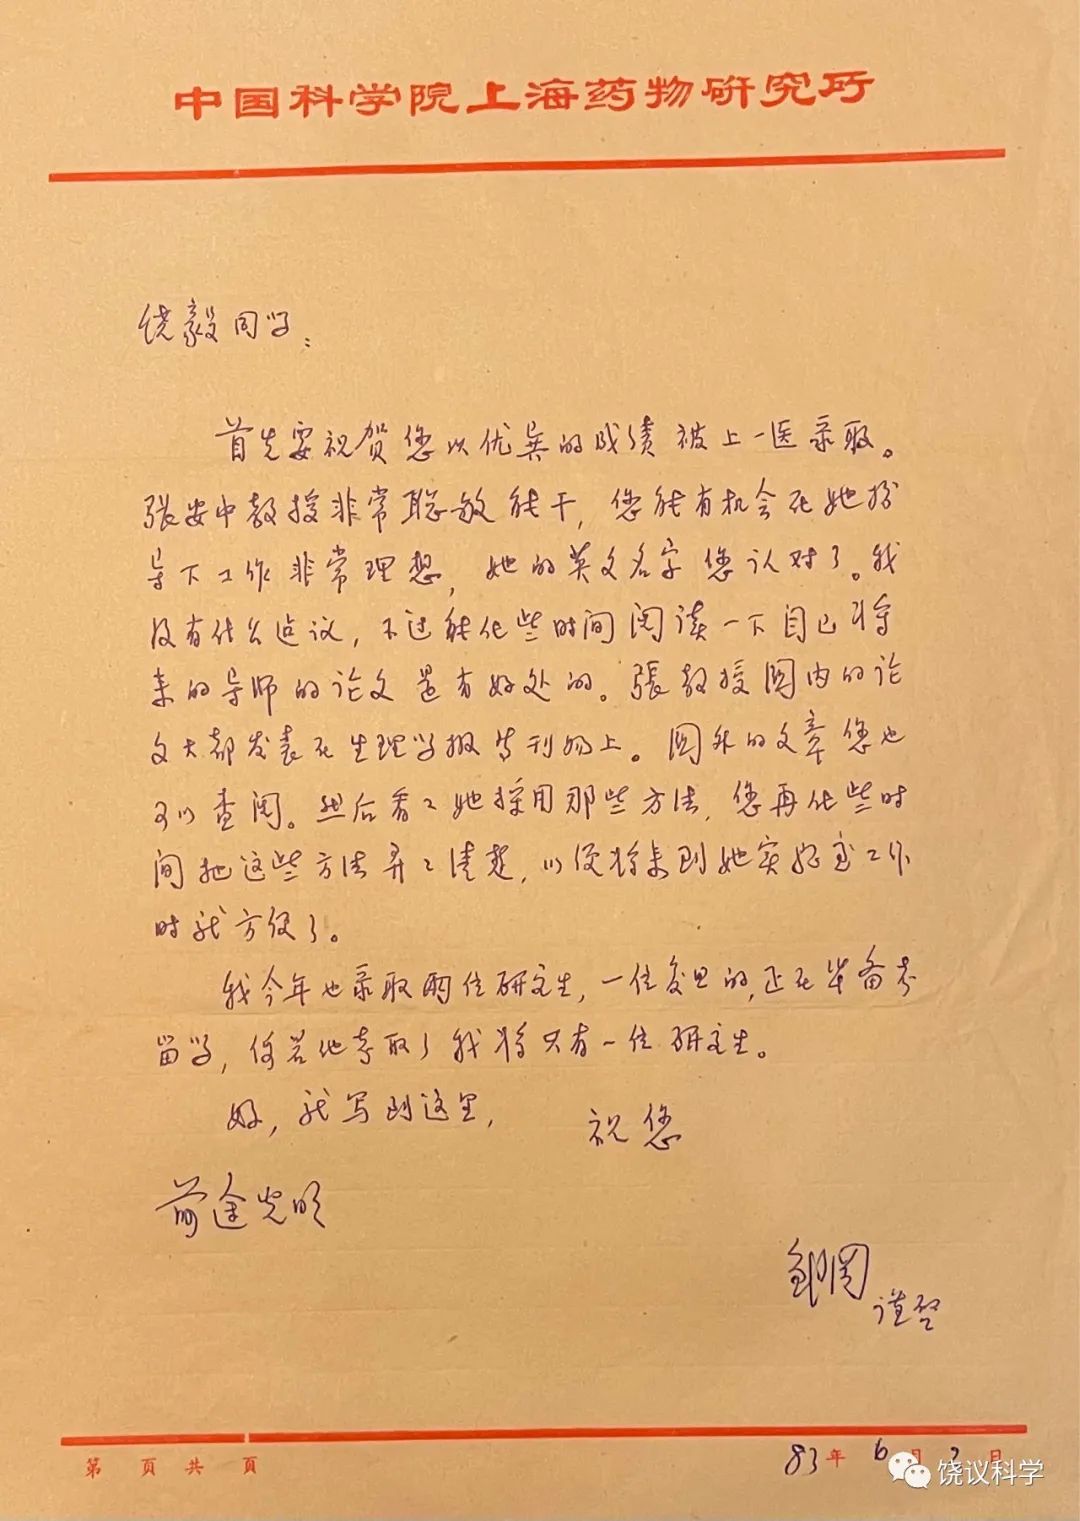 中国科学院上海药物研究所
饶毅同学：
首先要祝贺您以优异的成绩被上一医录取。
张安中教授非常聪敏能干，您能有机会在她指
导下工作非常理想，她的英文名字您认对了。我
没有什么建议，不过能化些时间阅读一下自己将
来的导师的论文是有好处的。張教授国内的论
文大都发表在生理学报等刊物上。国外的文章您也
可以查阅。然后看看她採用那些方法，您再化些时
间把这些方法弄弄清楚，以便将来到她实验室工作
时就方便了。
我今年也录取两位研究生，一位复旦的，正在准备考
留学，倘若他考取了我将只有一位研究生。
好，就写到这里，
祝您
前途光明
邹冈
谨启
第 页共 页
83年6月 日
饶议科学